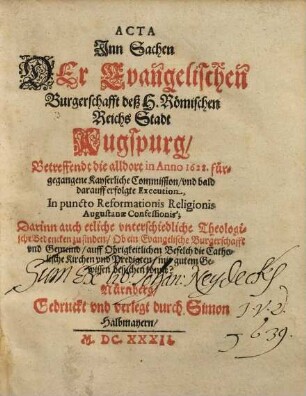 ACTA
Inn Sachen
Der Evangelischen
Burgerschafft deß H. Römischen
Reichs Stadt
Augspurg/
Betreffendt die alldort in Anno 1628. für-
gegangene Kayserliche Commission/ vnd bald
darauff erfolgte Execution,
In puncto Reformationis Religionis
Augustanæ Confessionis;
Darinn auch etliche vnterschiedliche Theologi-
sche Bedencken zu finden/ Ob ein Evangelische Burgerschafft
vnd Gemeind/ auff Obrigkeitlichen Befelch die Catho-
lische Kirchen vnd Predigten/ mit gutem Ge-
wissen besuchen
Sum ex
Nürnberg/
J.V.D.
Gedruckt vnd verlegt durch Simon
1639.
Halbmayern/
M. DC. XXXII.